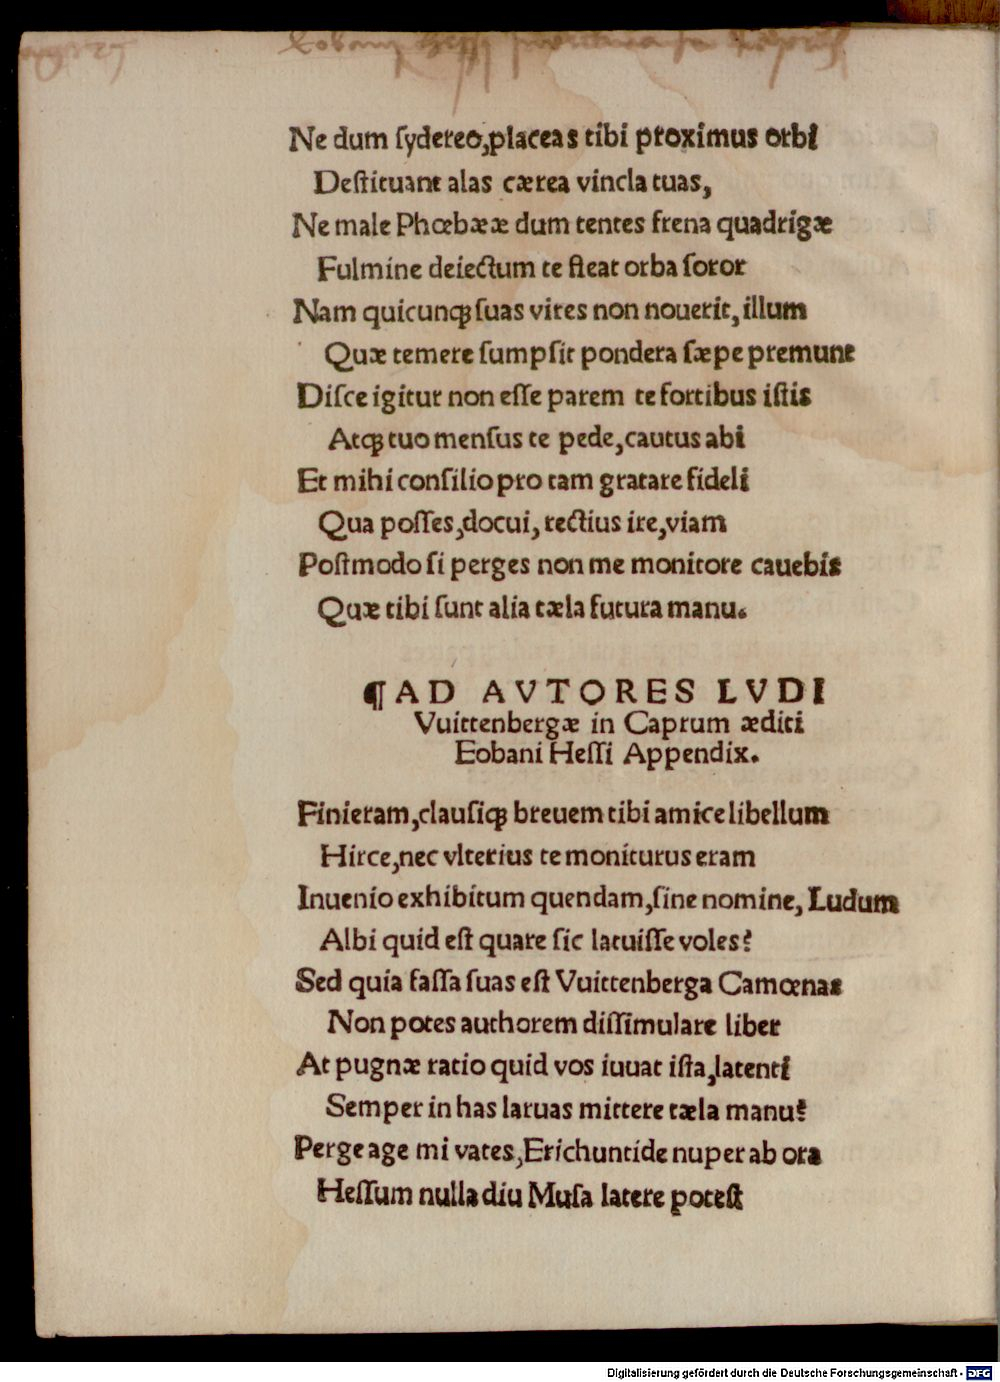 Ne dum ſydereo,placeas tibi proximus orbi
Deſtituant alas cærea vincla tuas,
Ne male Phœbææ dum tentes frena quadrigæ
Fulmine deiectum te fleat orba ſoror
Nam quicunqꝫ ſuas vires non nouerit, illum
Quæ temere ſumpſit pondera ſæpe premunt
Diſce igitur non eſſe parem te fortibus iſtis
Atqꝫ tuo menſus te pede,cautus abi
Et mihi conſilio pro tam gratare fideli
Qua poſſes,docui, rectius ire,viam
Poſtmodo ſi perges non me monitore cauebis
Quæ tibi ſunt alia tæla futura manu.
¶AD AVTORES LVDI
Vuittenbergæ in Caprum æditi
Eobani Heſſi Appendix.
Finieram,clauſiqꝫ breuem tibi amice libellum
Hirce,nec vlterius te moniturus eram
Inuenio exhibitum quendam,ſine nomine, Ludum
Albi quid eſt quare ſic latuiſſe voles?
Sed quia faſſa ſuas eſt Vuittenberga Camœnas
Non potes authorem diſſimulare liber
At pugnæ ratio quid vos iuuat iſta,latenti
Semper in has laruas mittere tæla manu?
Perge age mi vates,Erichuntide nuper ab ora
Heſſum nulla diu Muſa latere poteſt
Digitalisierung gefördert durch die Deutsche Forschungsgemeinschaft - DFG